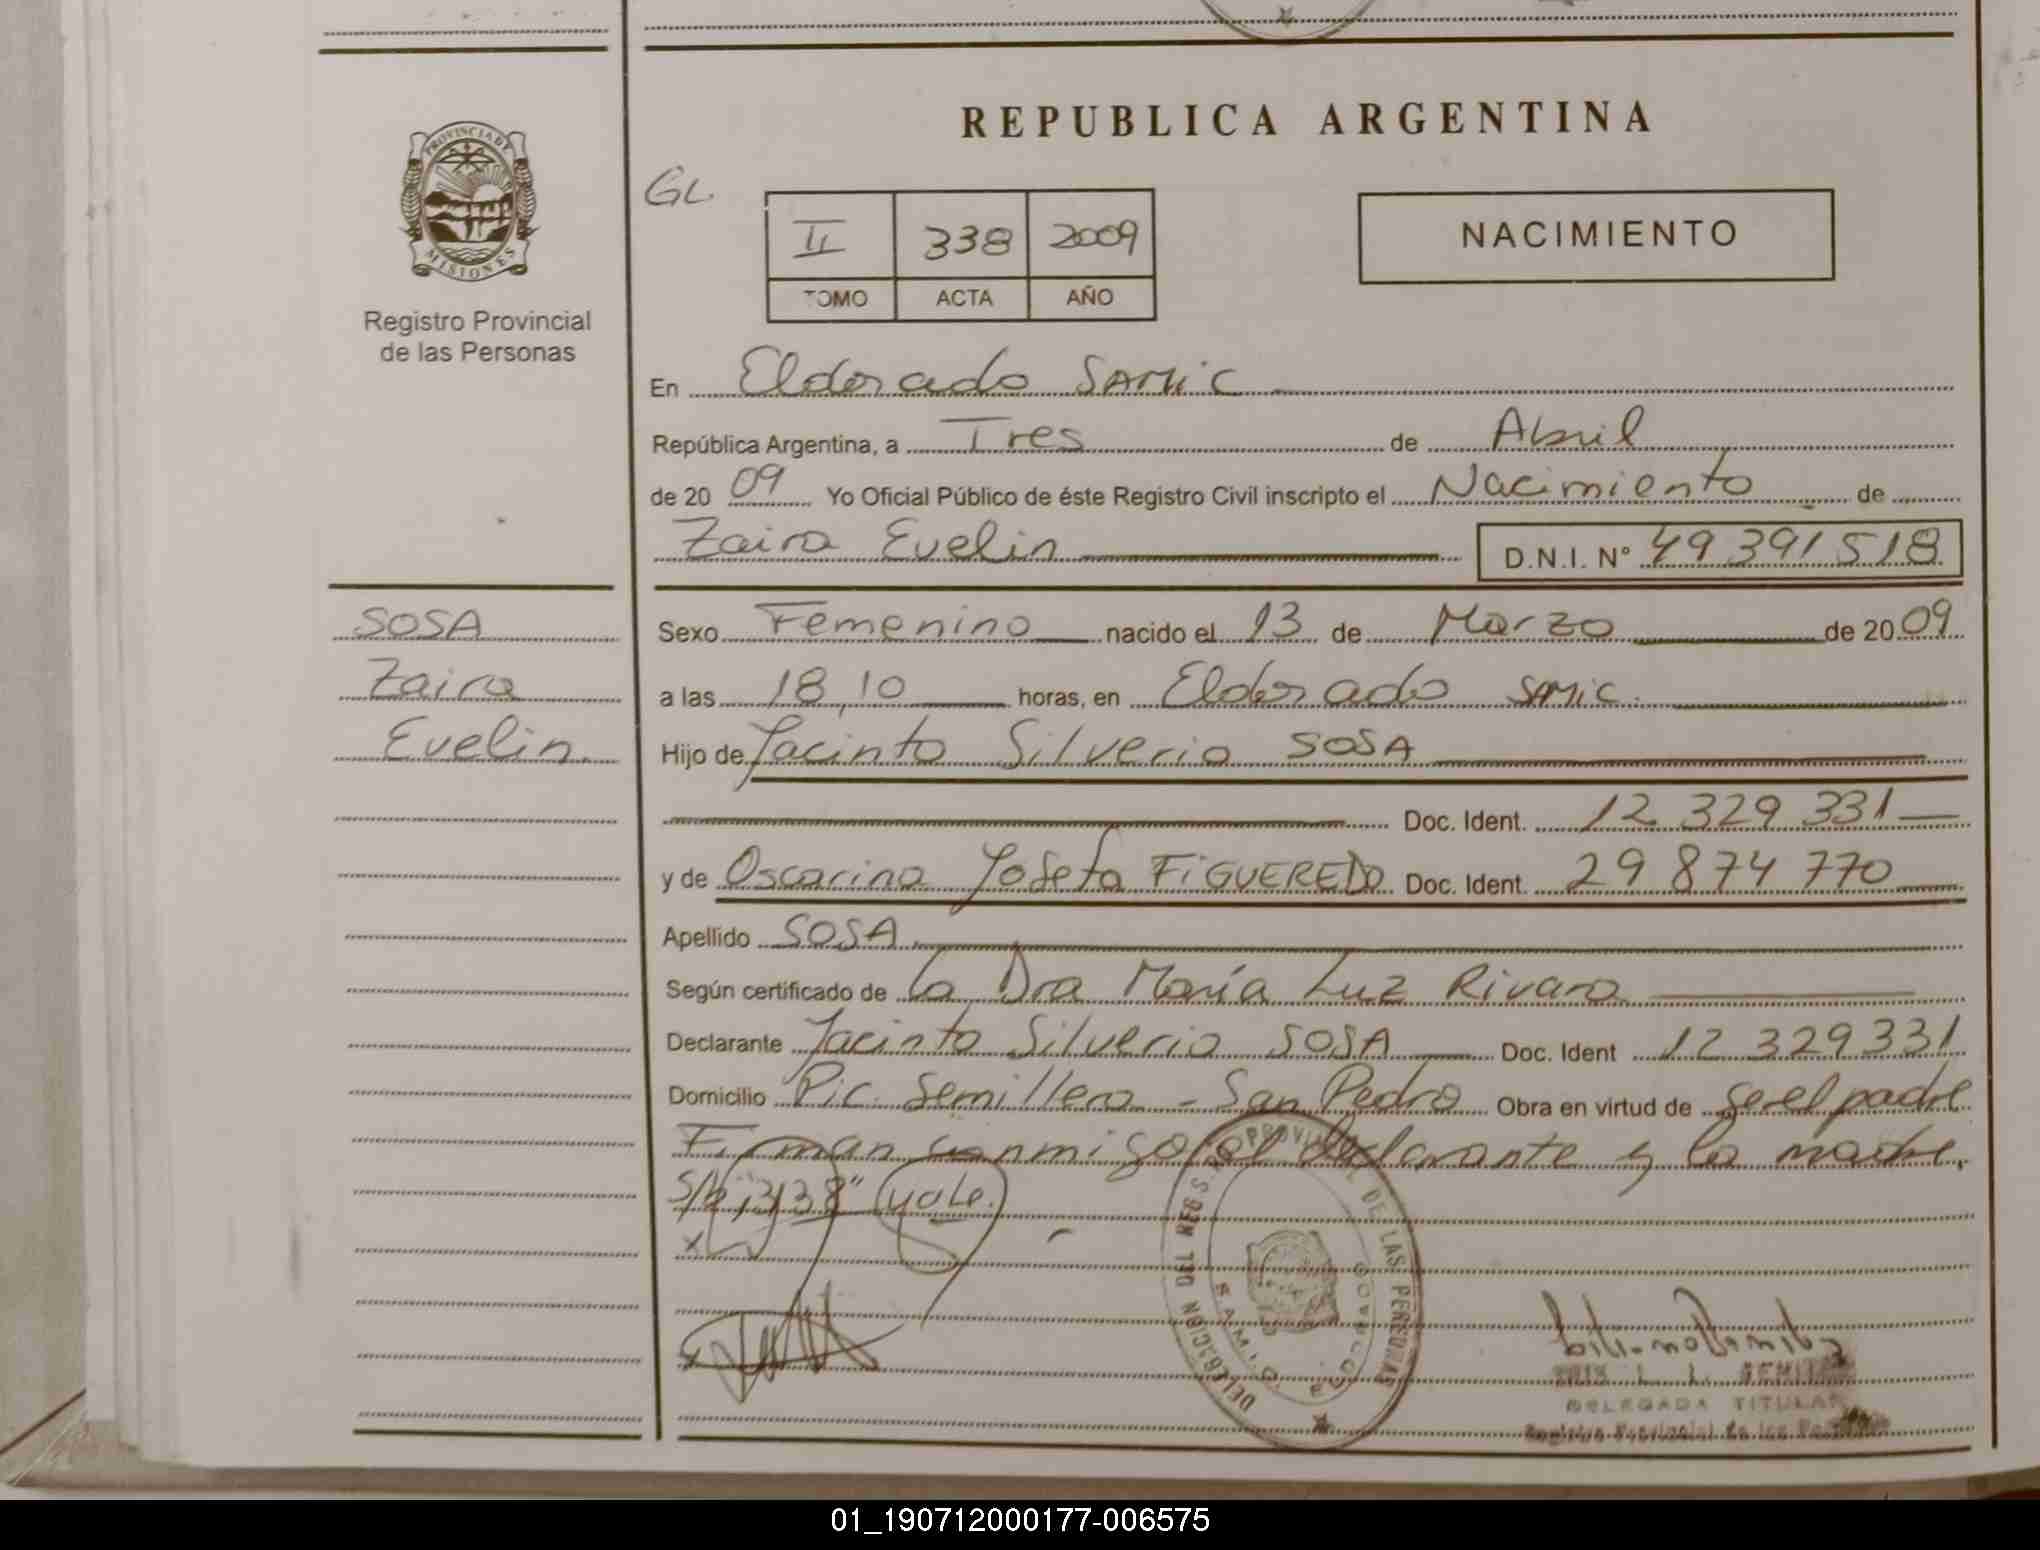 REPUBLICA ARGENTINA
PROVINCIA DE MISIONES
Registro Provincial
de las Personas
GL
II 338 2009
TOMO ACTA AÑO
NACIMIENTO
En Eldorado SAMIC
República Argentina, a Tres de Abril
de 2009 Yo Oficial Público de éste Registro Civil inscripto el Nacimiento de
Zaira Evelin D.N.I. Nº 49 391 518
SOSA
Zaira
Evelin.
Sexo Femenino nacido el 13 de Marzo de 2009
a las 18,10 horas, en Eldorado SAMIC.
Hijo de Jacinto Silverio SOSA
Doc. Ident. 12 329 331
y de Oscarina Josefa FIGUEREDO Doc. Ident. 29 874 770
Apellido SOSA
Según certificado de la Dra María Luz Rivara
Declarante Jacinto Silverio SOSA Doc. Ident 12 329 331
Domicilio Pic. Semillero - San Pedro Obra en virtud de ser el padre
Firman conmigo el declarante y la madre.
S/R "338" Vale.
PROVINCIAL DE LAS PERSONAS
DELEGACION DEL
S.A.M.I.C.
DELEGADA TITULAR
Registro Provincial de las Personas
01_190712000177-006575